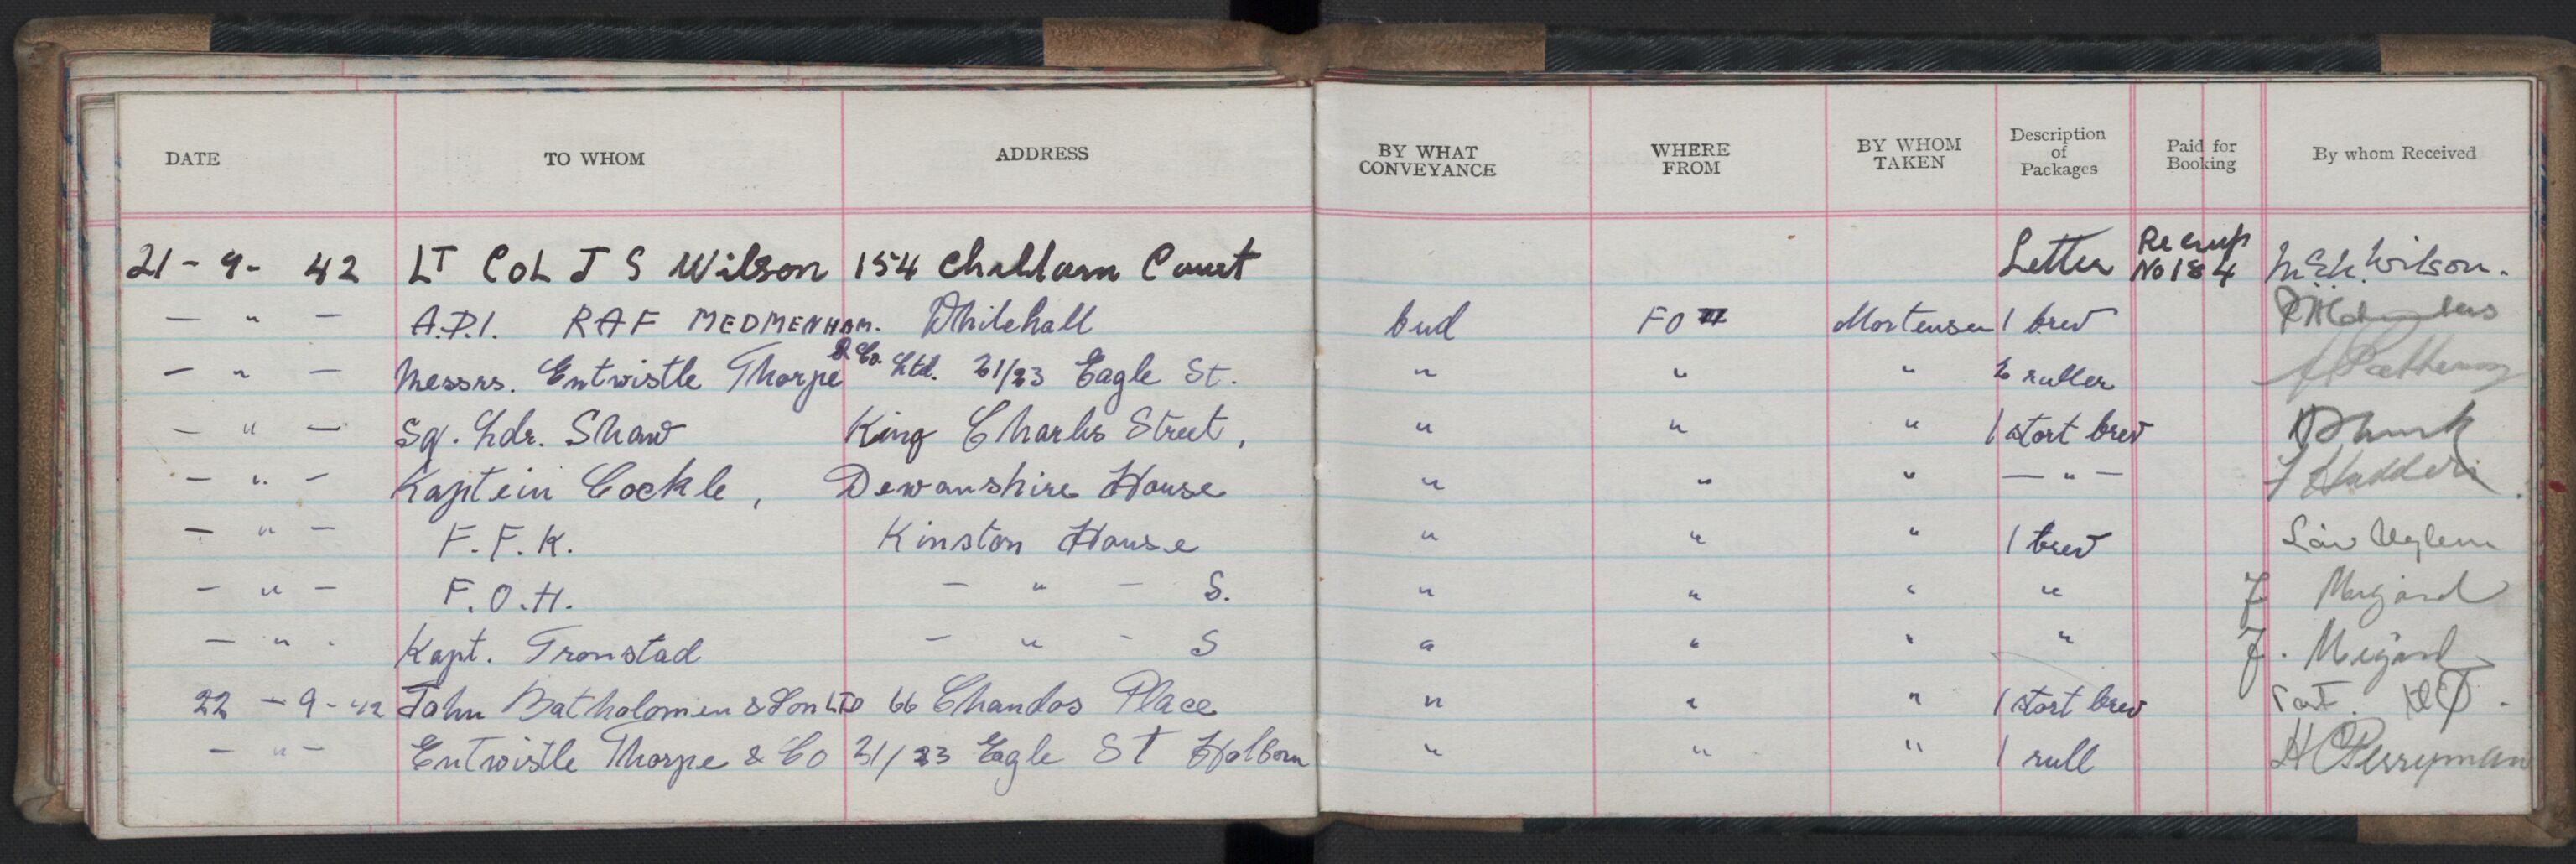 DATE TO WHOM ADDRESS BY WHAT CONVEYANCE WHERE FROM BY WHOM TAKEN Description of Packages Paid for Booking By whom Received
21 - 9 - 42 LT COL J S Wilson 154 Court Letter No 184 Wilson.
— " — A.D.I. RAF MEDMENHAM. Whitehall bud FO Mortensen 1 brev
— " — Messrs. Entwistle Thorpe & Co. Ltd. 21/23 Eagle St. " " " 2 ruller
— " — Sq. Ldr. Shaw King Charles Street, " " " 1 stort brev
- " - Kaptein Cockle, Dewanshire House " " " — " —
- " - F.F.K. Kinston House " " " 1 brev
- " - F.O.H. - " - S. " " " " J
- " - Kapt. Tronstad - " - S " " " " J.
22 - 9 - 42 John Batholomen & Son LTD 66 Chandos Place " " " 1 stort brev
- " - Entwistle Thorpe & Co 21/23 Eagle St Holborn " " " 1 rull H Perryman